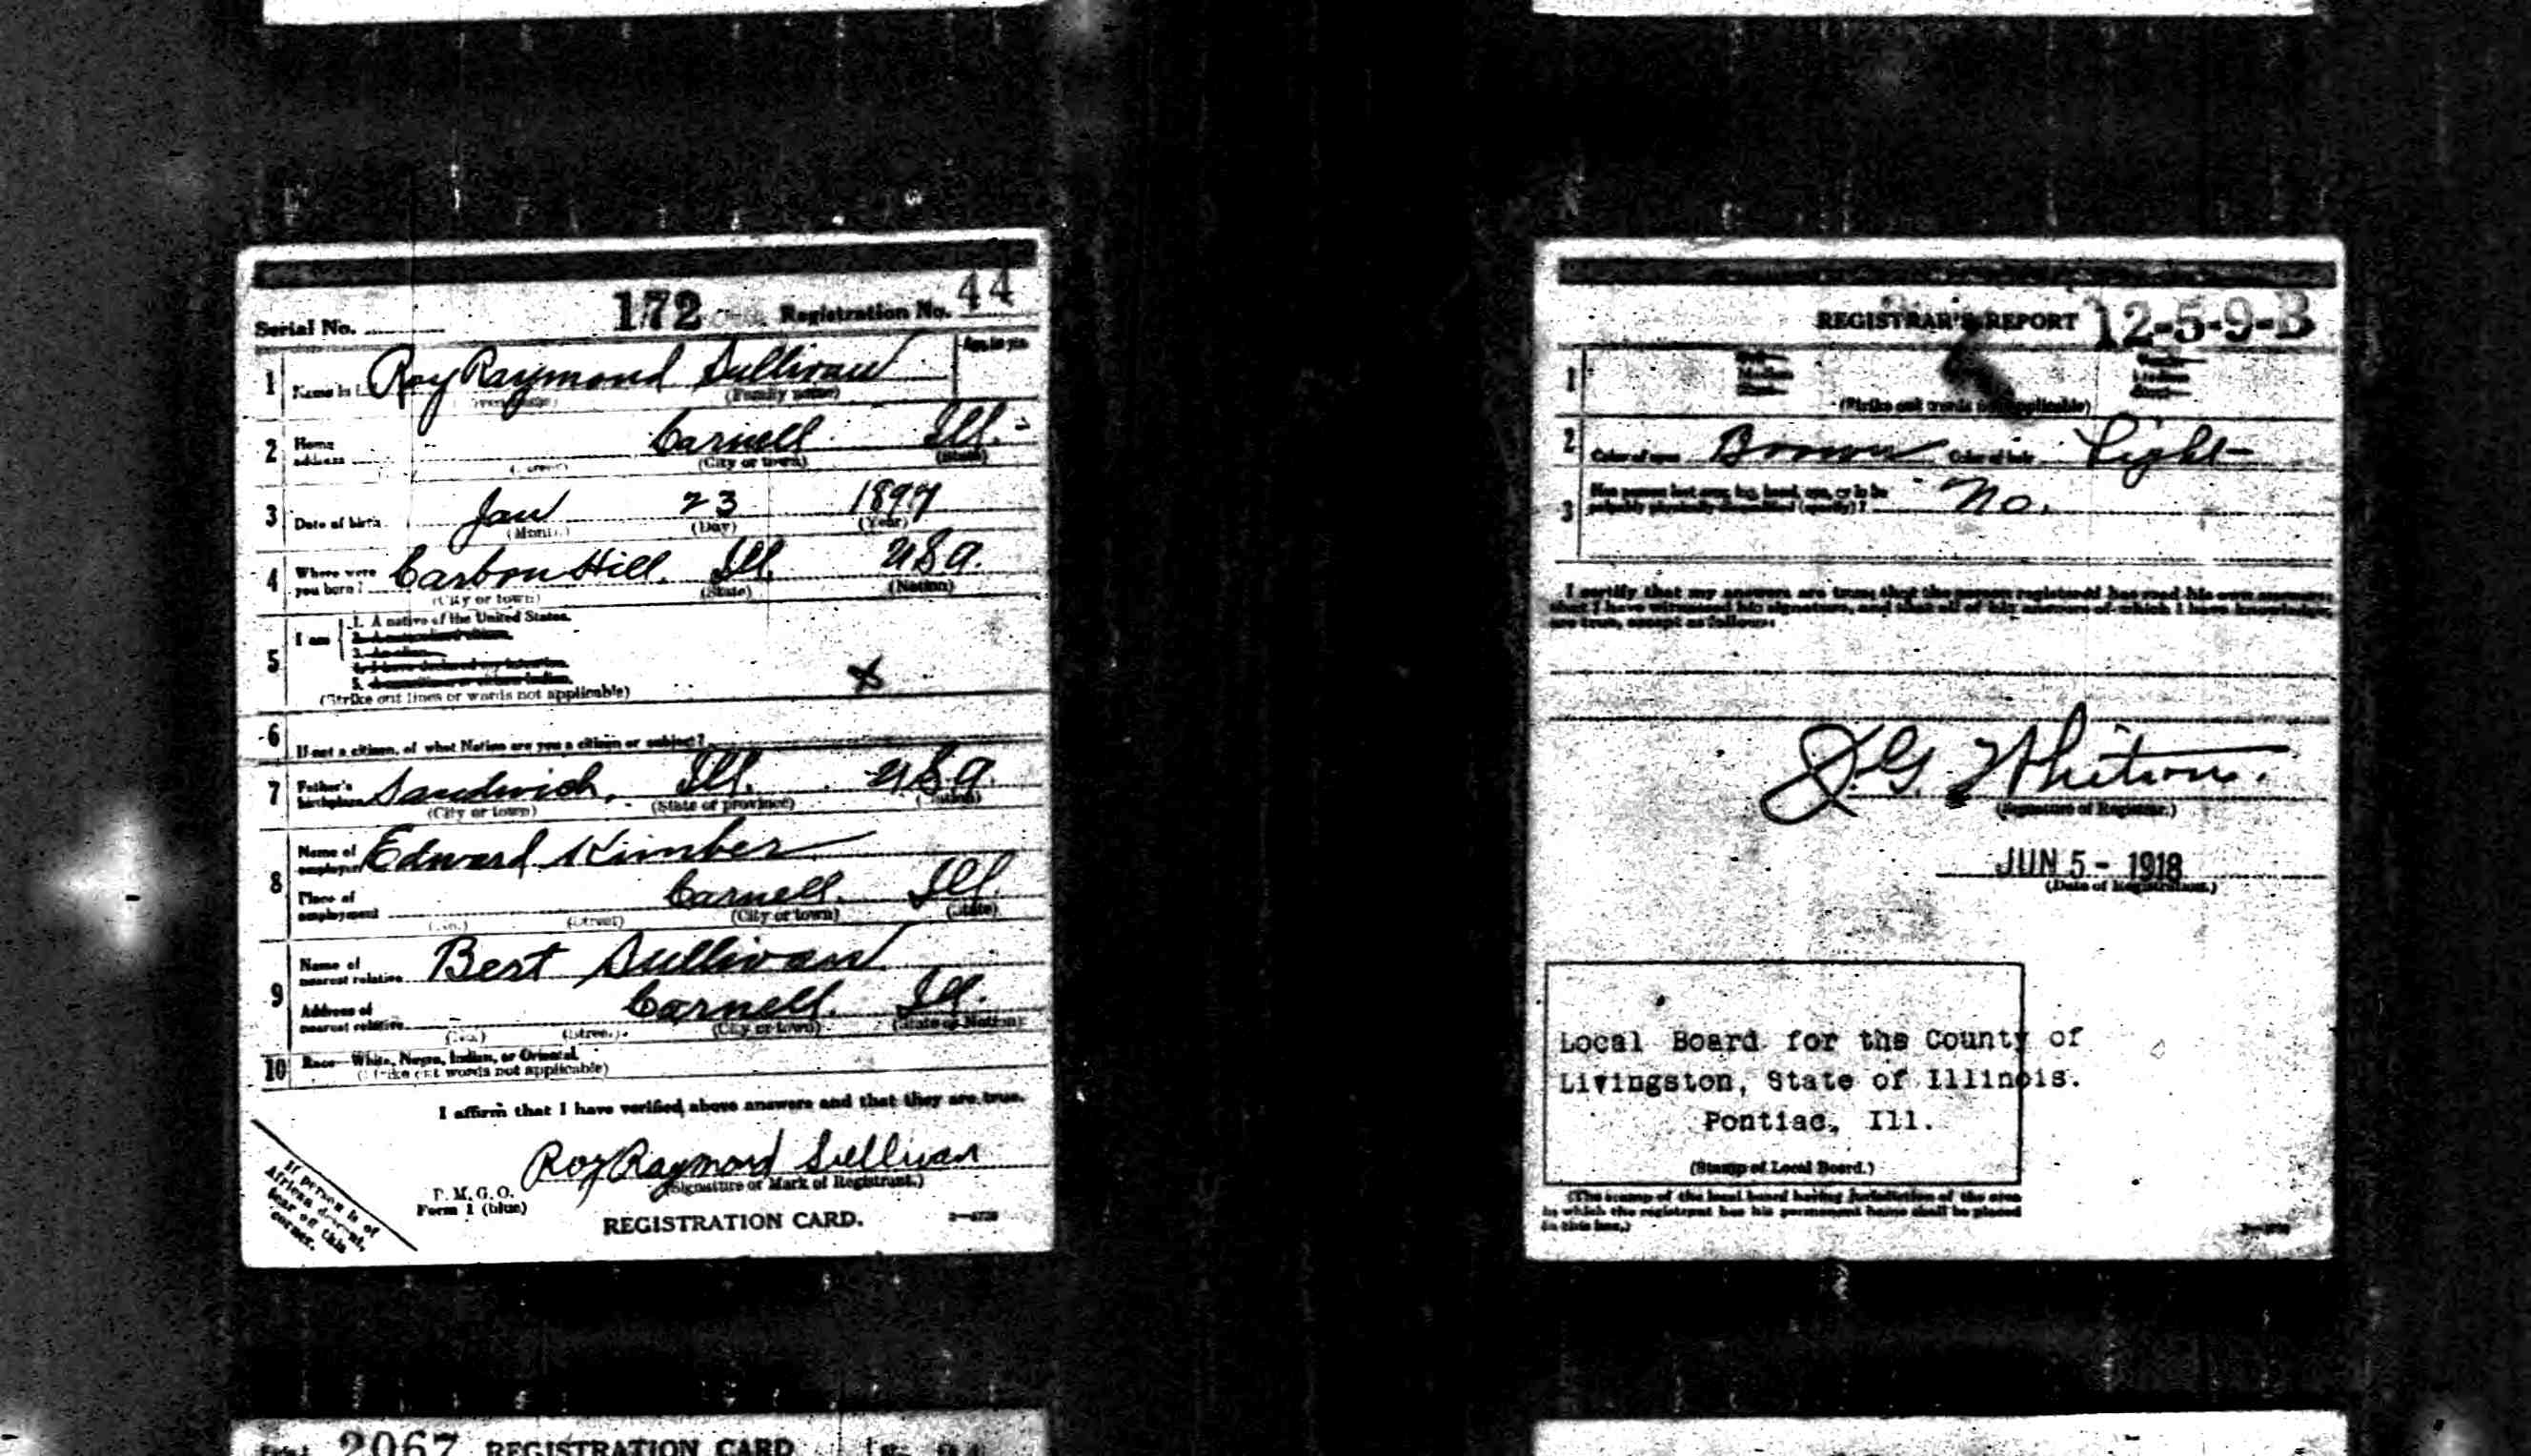 Serial No. 172 Registration No. 44
1 Name in Roy Raymond Sullivan Age, in yrs.
(Family name)
2 Home address Carnell Ill.
(City or town) (State)
3 Date of birth Jan 23 1897
(Month) (Day) (Year)
4 Where were you born? Carbon Hill, Ill, USA.
(City or town) (State) (Nation)
5 I am 1. A native of the United States.
2. A naturalized citizen.
3. An alien.
4. I have declared my intention.
5. A noncitizen or citizen Indian.
(Strike out lines or words not applicable) X
6 If not a citizen, of what Nation are you a citizen or subject?
7 Father's birthplace Sandwich, Ill. USA
(City or town) (State or province) (Nation)
8 Name of employer Edward Kimber
Place of employment Carnell. Ill.
(No.) (Street) (City or town) (State)
9 Name of nearest relative Bert Sullivan
Address of nearest relative Carnell. Ill.
(No.) (Street) (City or town) (State or Nation)
10 Race—White, Negro, Indian, or Oriental
(Strike out words not applicable)
I affirm that I have verified above answers and that they are true.
Roy Raymond Sullivan
(Signature or Mark of Registrant.)
P. M. G. O.
Form 1 (blue)
REGISTRATION CARD.
If person is of
African descent,
tear off this
corner.
2067 REGISTRATION CARD
REGISTRAR'S REPORT 12-5-9-B
1
(Strike out words not applicable)
2 Color of eyes Brown Color of hair Light
3 Has person lost arm, leg, hand, eye, or is he
palpably physically disqualified (specify)? No.
I certify that my answers are true; that the person registered has read his own answers;
that I have witnessed his signature, and that all of his answers of which I have knowledge
are true, except as follows:
J.G. Whitson.
(Signature of Registrar.)
JUN 5 - 1918
(Date of Registration.)
Local Board for the County of
Livingston, State of Illinois.
Pontiac, Ill.
(Stamp of Local Board.)
(The stamp of the local board having jurisdiction of the area
in which the registrant has his permanent home shall be placed
in this box.)